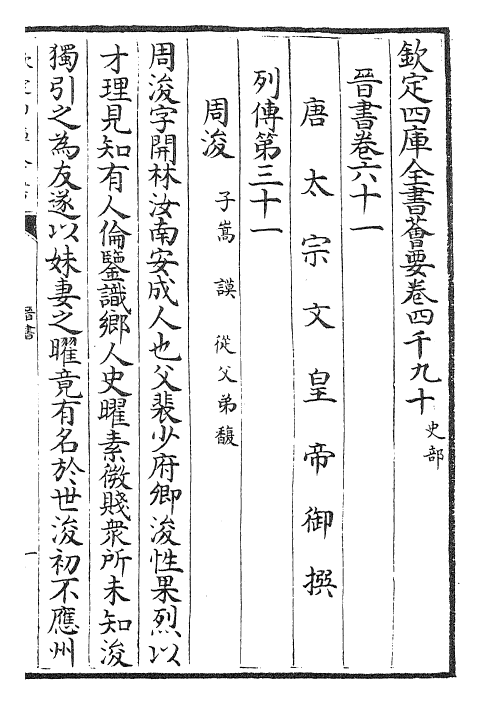 欽定四庫全書薈要卷四千九十 史部
晉書卷六十一
唐太宗文皇帝御撰
列傳第三十一
周浚 子嵩 謨 從父弟馥
周浚字開林汝南安成人也父裴少府卿浚性果烈以
才理見知有人倫鑒識鄉人史曜素微賤衆所未知浚
獨引之為友遂以妹妻之曜竟有名於世浚初不應州
晉書
一